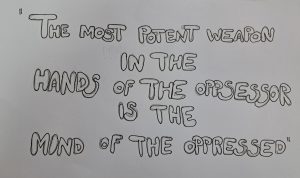 "THE MOST POTENT WEAPON
IN THE
HANDS OF THE OPPSESSOR
IS THE
MIND OF THE OPPRESSED"